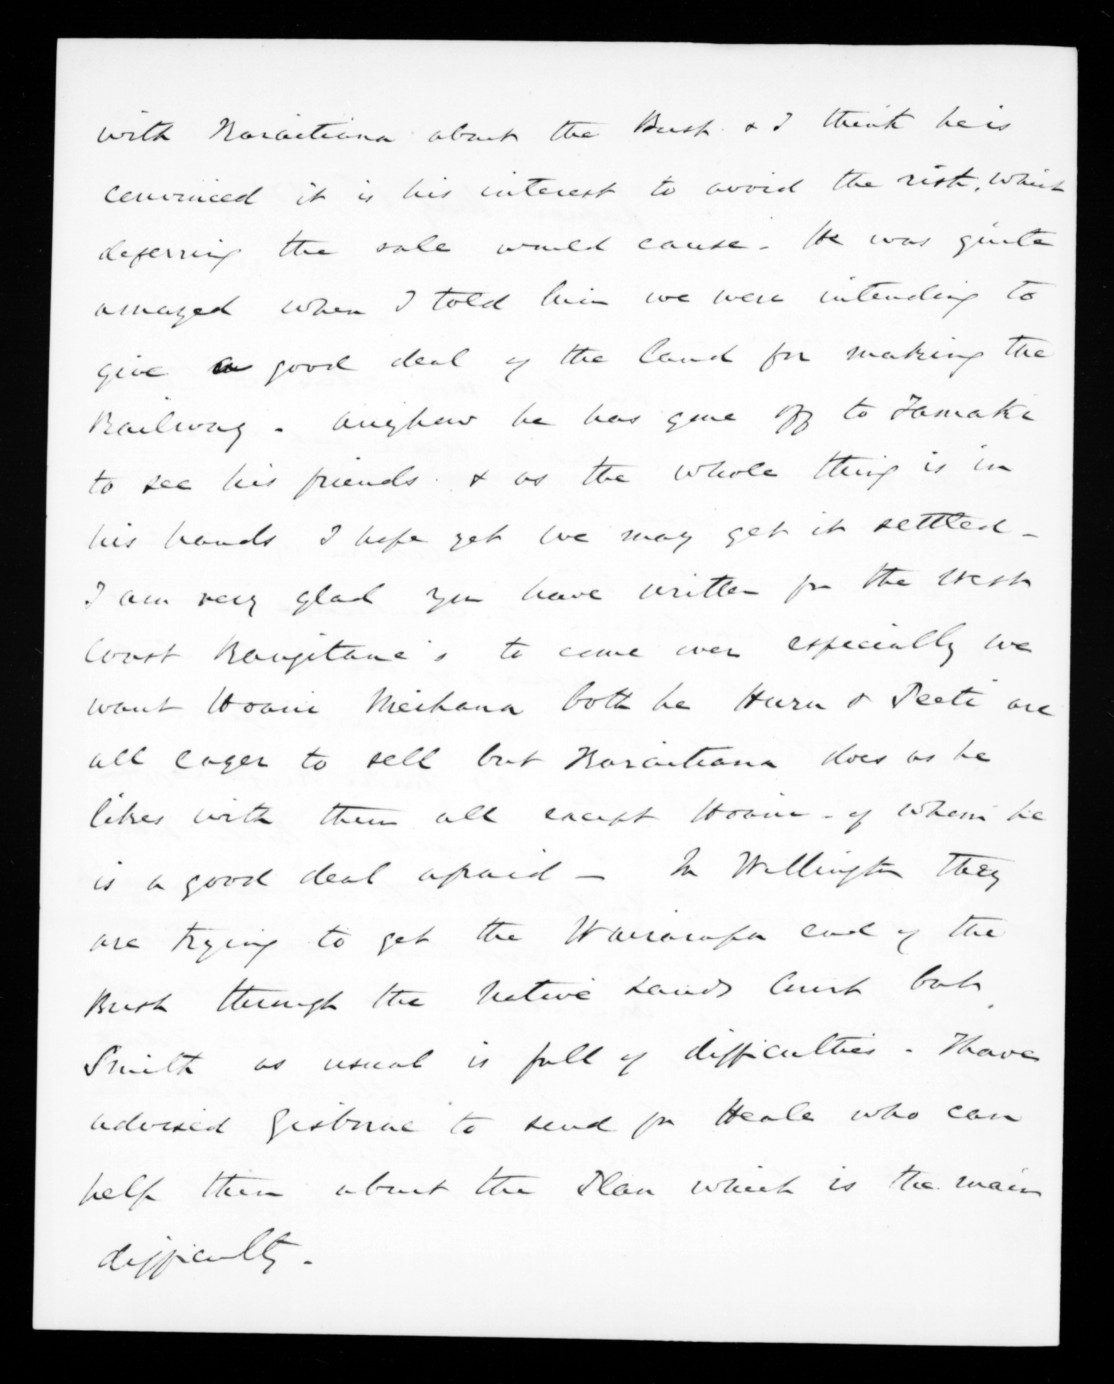 with Karaitiana about the Bush & I think he is
convinced it is his interest to avoid the risk, which
deferring the sale would cause. He was quite
amazed when I told him we were intending to
give a good deal of the land for making the
Railway. Anyhow he has gone off to Tamaki
to see his friends & as the whole thing is in
his hands I hope yet we may get it settled -
I am very glad you have written for the West
Coast Rangitane's to come over especially we
want Hoani Meihana both he Huru & Peeti are
all eager to sell but Karaitiana does as he
likes with them all except Hoani - of whom he
is a good deal afraid - In Wellington they
are trying to get the Wairarapa end of the
Bush through the Native Lands Court but
Smith as usual is full of difficulties. I have
advised Gisborne to send for Heale who can
help them about the Plan which is the main
difficulty.